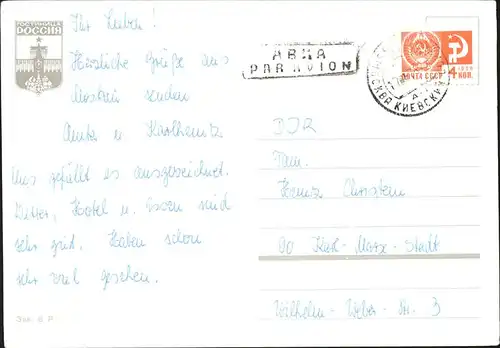 ГОСТИНИЦА
РОССИЯ
Ihr Lieben!
Herzliche Grüße aus
Moskau senden
Anita u. Karlheinz
Uns gefällt es ausgezeichnet.
Wetter, Hotel u. Essen sind
sehr gut. Haben schon
sehr viel gesehen.
АВИА
PAR AVION
МОСКВА КИЕВСКИЙ
ПОЧТА СССР
4 КОП.
DDR
Fam.
Heinz
90 Karl-Marx-Stadt
Wilhelm-Weber-Str. 3
Зак. 8